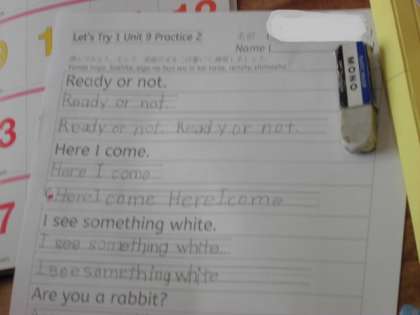 Let's Try 1 Unit 9 Practice 2
Name (
Ready or not.
Ready or not.
Ready or not. Ready or not.
Here I come.
Here I come
Here I come Here I come
I see something white.
I see something white.
I see something white
Are you a rabbit?
MONO
1
12
3
7